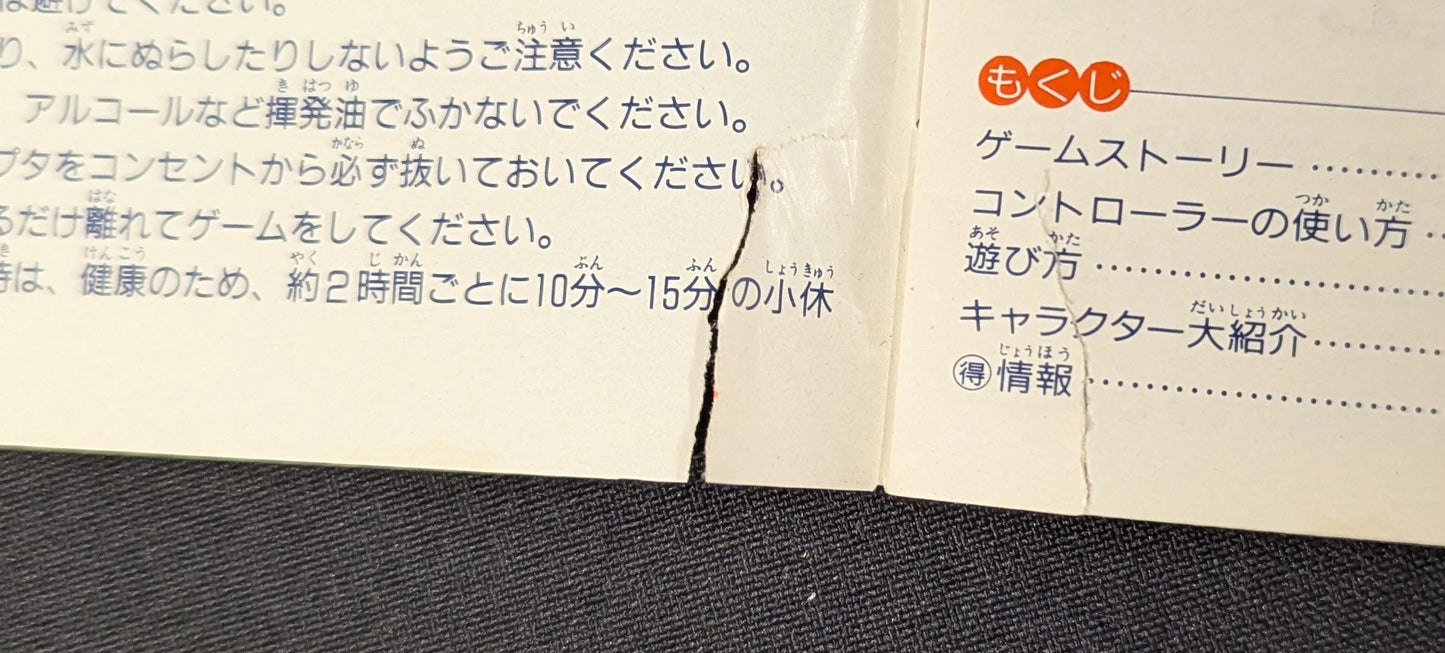 てください。
り、水にぬらしたりしないようご注意ください。
アルコールなど揮発油でふかないでください。
プタをコンセントから必ず抜いておいてください。
るだけ離れてゲームをしてください。
時は、健康のため、約2時間ごとに10分～15分の小休
もくじ
ゲームストーリー ………
コントローラーの使い方 ‥
遊び方 ………………
キャラクター大紹介………
得情報 ………………